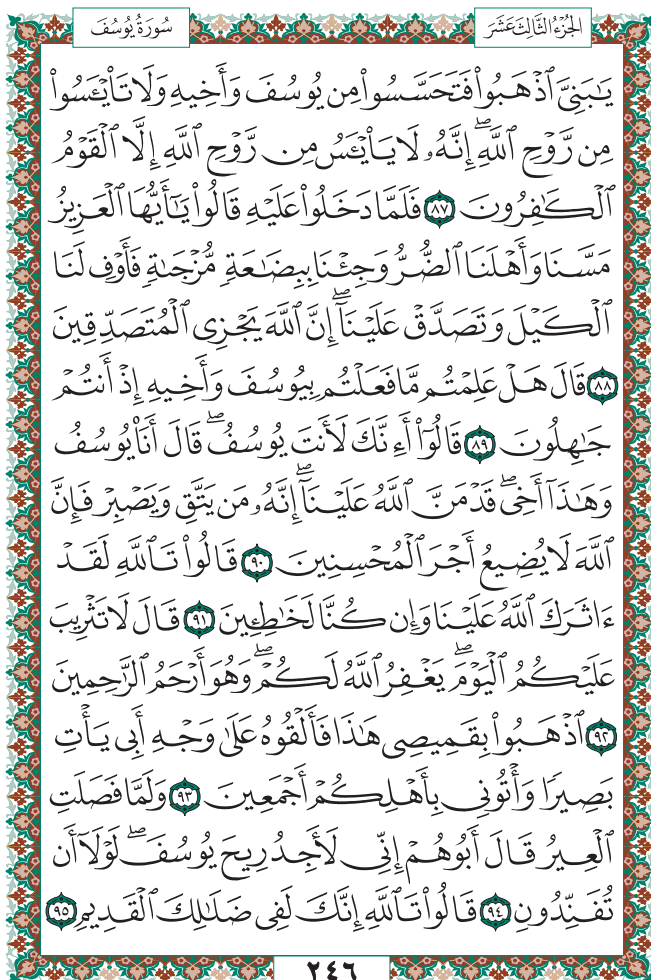 الجُزْءُ الثَّالِثَ عَشَرَ
سُورَةُ يُوسُفَ
يَٰبَنِيَّ ٱذۡهَبُواْ فَتَحَسَّسُواْ مِن يُوسُفَ وَأَخِيهِ وَلَا تَاْيۡـَٔسُواْ
مِن رَّوۡحِ ٱللَّهِۖ إِنَّهُۥ لَا يَاْيۡـَٔسُ مِن رَّوۡحِ ٱللَّهِ إِلَّا ٱلۡقَوۡمُ
ٱلۡكَٰفِرُونَ ٨٧ فَلَمَّا دَخَلُواْ عَلَيۡهِ قَالُواْ يَٰٓأَيُّهَا ٱلۡعَزِيزُ
مَسَّنَا وَأَهۡلَنَا ٱلضُّرُّ وَجِئۡنَا بِبِضَٰعَةٖ مُّزۡجَىٰةٖ فَأَوۡفِ لَنَا
ٱلۡكَيۡلَ وَتَصَدَّقۡ عَلَيۡنَآۖ إِنَّ ٱللَّهَ يَجۡزِي ٱلۡمُتَصَدِّقِينَ
٨٨ قَالَ هَلۡ عَلِمۡتُم مَّا فَعَلۡتُم بِيُوسُفَ وَأَخِيهِ إِذۡ أَنتُمۡ
جَٰهِلُونَ ٨٩ قَالُوٓاْ أَءِنَّكَ لَأَنتَ يُوسُفُۖ قَالَ أَنَا۠ يُوسُفُ
وَهَٰذَآ أَخِيۖ قَدۡ مَنَّ ٱللَّهُ عَلَيۡنَآۖ إِنَّهُۥ مَن يَتَّقِ وَيَصۡبِرۡ فَإِنَّ
ٱللَّهَ لَا يُضِيعُ أَجۡرَ ٱلۡمُحۡسِنِينَ ٩٠ قَالُواْ تَٱللَّهِ لَقَدۡ
ءَاثَرَكَ ٱللَّهُ عَلَيۡنَا وَإِن كُنَّا لَخَٰطِـِٔينَ ٩١ قَالَ لَا تَثۡرِيبَ
عَلَيۡكُمُ ٱلۡيَوۡمَۖ يَغۡفِرُ ٱللَّهُ لَكُمۡۖ وَهُوَ أَرۡحَمُ ٱلرَّٰحِمِينَ
٩٢ ٱذۡهَبُواْ بِقَمِيصِي هَٰذَا فَأَلۡقُوهُ عَلَىٰ وَجۡهِ أَبِي يَأۡتِ
بَصِيرٗا وَأۡتُونِي بِأَهۡلِكُمۡ أَجۡمَعِينَ ٩٣ وَلَمَّا فَصَلَتِ
ٱلۡعِيرُ قَالَ أَبُوهُمۡ إِنِّي لَأَجِدُ رِيحَ يُوسُفَۖ لَوۡلَآ أَن
تُفَنِّدُونِ ٩٤ قَالُواْ تَٱللَّهِ إِنَّكَ لَفِي ضَلَٰلِكَ ٱلۡقَدِيمِ ٩٥
٢٤٦